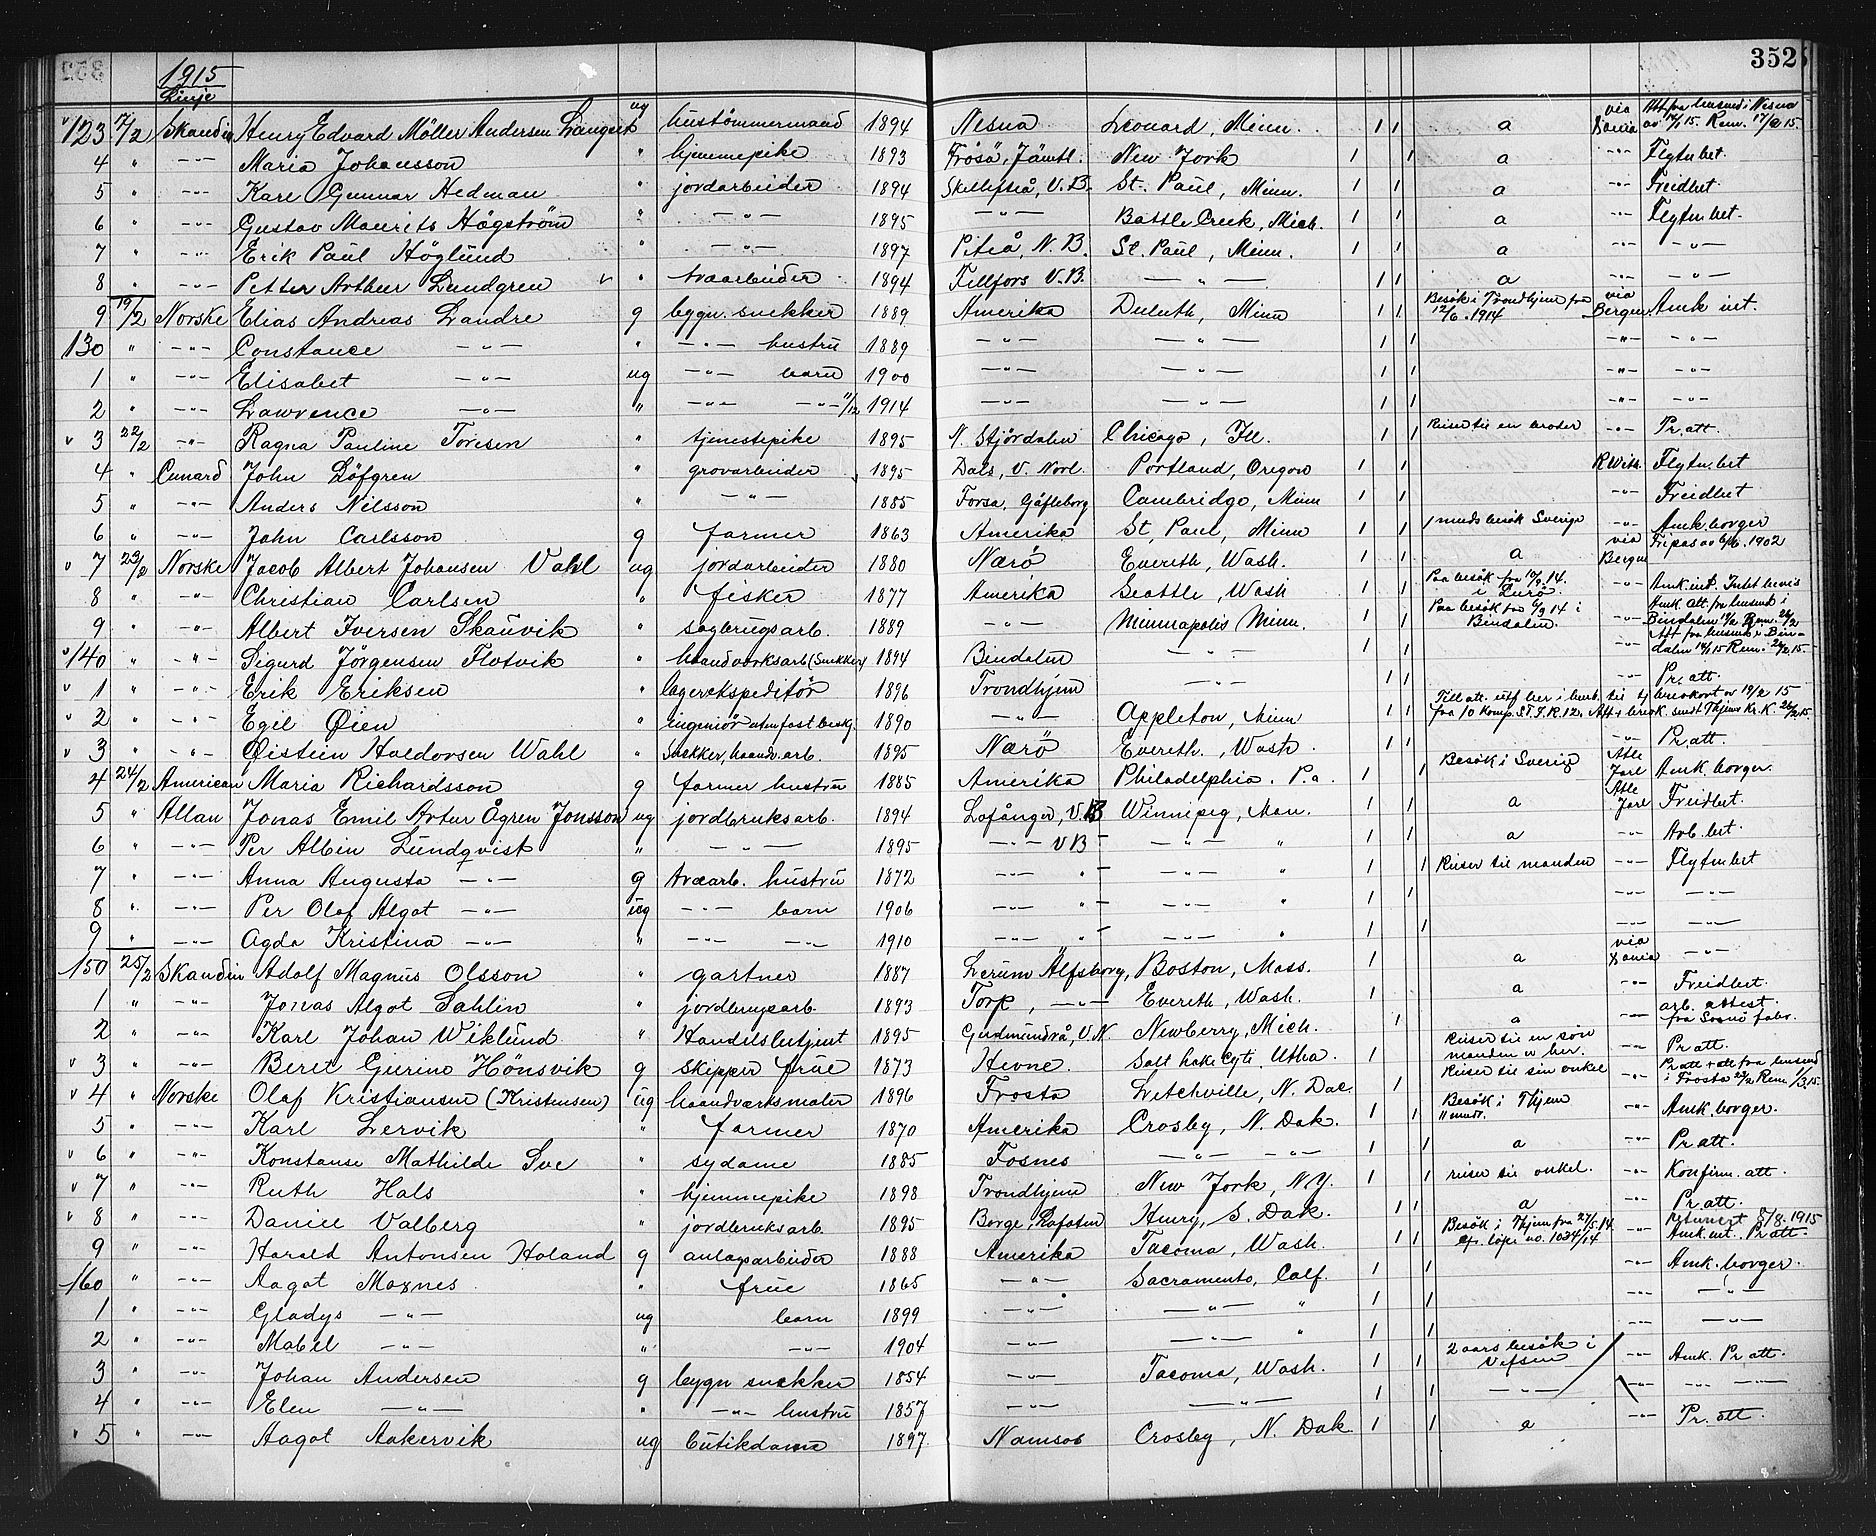 352
1915
Linje
123 17/2 Skandin Henry Edvard Möller Andersen Langset ug hustömmermand 1894 Nesna Leonard, Minn. 1 1 a via Dania Att fra lensmd i Nesna av 14/1 15. Rem. 17/2 15.
4 " -"- Maria Johansson " hjemmepike 1893 Frösö, Jämtl. New York 1 1 a -"- Flytn bet.
5 " -"- Karl Gunnar Hedman " jordarbeider 1894 Skellefteå, V.B. St. Paul, Minn. 1 1 a -"- Freidbet.
6 " -"- Gustav Maurits Högström " -"- 1895 -"- Battle Creek, Mich. 1 1 a -"- Flytn bet.
7 " -"- Erik Paul Höglund " -"- 1897 Piteå, N.B. St. Paul, Minn. 1 1 a -"- -"-
8 " -"- Petter Arthur Lundgren v " træarbeider 1894 Fellfors V.B. -"- 1 1 a -"- -"-
9 19/2 Norske Elias Andreas Landre g bygn. snekker 1889 Amerika Duluth, Minn 1 1 Besök i Trondhjem fra 12/6. 1914 via Bergen Amk int.
130 " -"- Constance -"- " -"- hustru 1889 -"- -"- 1 1 -"- -"-
1 " -"- Elisabet -"- ug -"- barn 1900 -"- -"- 1 1 -"- -"-
2 " -"- Lawrence -"- " -"- -"- 11/12 1914 -"- -"- 1 1 -"- -"-
v 3 22/2 -"- Ragna Pauline Toresen " tjenestepike 1895 N. Stjördalen Chicago, Ill. 1 1 Reiser til en broder -"- Pr. att.
4 " Cunard John Löfgren " grovarbeider 1895 Dals, V. Norl. Portland, Oregon 1 1 R Wils. Flytn bet
5 " -"- Anders Nilsson " -"- 1885 Forsa, Gäfleborg Cambridge, Minn 1 1 -"- Freidbet
6 " -"- John Carlsson g farmer 1863 Amerika St. Paul, Minn 1 1 1 mnds besök Sverige -"- Amk. borger
v 7 23/2 Norske Jacob Albert Johansen Vahl ug jordarbeider 1880 Nærö Evereth, Wash. 1 1 a via Bergen Fripas av 6/6. 1902
8 " -"- Christian Carlsen " fisker 1877 Amerika Seattle, Wash 1 1 Paa besök fra 10/9. 14. i Lurö -"- Amk int. Intet bevis
9 " -"- Albert Iversen Skauvik " sagbrugsarb. 1889 -"- Minneapolis Minn. 1 1 Paa besök fra 6/9 14 i Bindalen. -"- Amk. Att. fra lensmd i Bindalen Rem.
v 140 " -"- Sigurd Jörgensen Flotvik " haandværksarb (Snekker) 1894 Bindalen -"- -"- Att fra lensmd i Bindalen 14/1 15 Rem. 24/2. 15.
v 1 " -"- Erik Eriksen " lagerekspeditör 1896 Trondhjem -"- 1 1 -"- Pr. att.
v 2 " -"- Egil Øien " ingeniör uten fast beskj. 1890 -"- Appleton, Minn 1 1 Till. att. utf her i henh. til tj. beskort av 19/2 15 fra 10 komp. S.T.I.R. 12. Att + besk. sendt Thjems Kr. K. 26/2. 15.
v 3 " -"- Øistein Haldorsen Wahl " Snekker, haandv. arb. 1895 Nærö Evereth. Wash. 1 1 -"- Pr. att
4 24/2 American Maria Richardsson g farmer hustru 1885 Amerika Philadelphia. Pa. 1 1 Besök i Sverig Atle Jarl Amk. borger.
5 " Allan Jonas Emil Artur Ågren Jonsson ug jordbruksarb. 1894 Lofånger, V.B Winnipeg, Man. 1 1 a Atle Jarl Freidbet.
6 " -"- Per Albin Lundqvist " -"- 1895 -"- VB -"- " 1 1 a -"- Arb. bet.
7 " -"- Anna Augusta -"- g træarb. hustru 1872 -"- " -"- " 1 1 Reiser til manden -"- Flytn bet
8 " -"- Per Olof Algot -"- ug -"- barn 1906 -"- " -"- " 1 1 -"- -"-
9 " -"- Agda Kristina -"- " -"- -"- 1910 -"- " -"- " 1 1 -"- -"-
150 25/2 Skandin Adolf Magnus Olsson " gartner 1887 Lerum Älfsborg, Boston, Mass. 1 a via Dania -"-
1 " -"- Jonas Algot Sahlin " jordbrugsarb. 1893 Torp, -"- Evereth, Wash. 1 a -"- Freidbet.
2 " -"- Karl Johan Wiklund " Handelsbetjent 1895 Gudmundrå, V.N. Newberry, Mich. 1 a -"- arb. attest fra Svanö fabr.
v 3 " -"- Beret Gurine Hönsvik g skipper frue 1873 Hevne Salt Lake Cyti. Utha. 1 Reiser til en sön manden er her. -"- Pr att.
v 4 " Norske Olaf Kristiansen (Kristensen) ug haandværksmaler 1896 Frosta Litchville, N. Dac. 1 Reiser til sin onkel -"- Pr att + att fra lensmd i Frosta 23/2 Rem. 1/3.15.
5 " -"- Karl Lervik " farmer 1870 Amerika Crosby, N. Dak. 1 1 Besök i Thjem 11 mndr. -"- Amk. borger.
v 6 " -"- Konstanse Mathilde Sve " sydame 1885 Fosnes -"- -"- 1 1 a -"- Pr att.
v 7 " -"- Ruth Hals " hjemmepike 1898 Trondhjem New York, N.Y. 1 1 reiser til onkel. -"- Konfirm. att.
v 8 " -"- Daniel Valberg " jordbruksarb. 1895 Borge, Lofoten Henry, S. Dak. 1 1 a -"- Pr att. returnert 8/8. 1915
9 " -"- Harald Antonsen Holand g anlægsarbeider 1888 Amerika Tacoma, Wash. 1 1 Besök i Thjem fra 27/5. 14. Cfr. löpe no. 1034/14 -"- Amk. int. Pr att.
160 " -"- Aagot Moxnes " frue 1865 -"- Sacramento, Calf. 1 1 -"- Amk. borger.
1 " -"- Gladys -"- ug barn 1899 -"- -"- " 1 1 -"- -"-
2 " -"- Mabel -"- " -"- 1904 -"- -"- " 1 1 -"- -"-
3 " -"- Johan Andersen g bygn snekker 1854 -"- Tacoma, Wash. 1 1 2 aars besök i Vefsen -"- Amk. Pr att.
4 " -"- Elen -"- " -"- hustru 1857 -"- -"- 1 1 -"- -"- -"- -"-
" 5 " -"- Aagot Aakervik ug butikdame 1897. Namsos Crosby, N. Dak. 1 1 a -"- Pr. att.